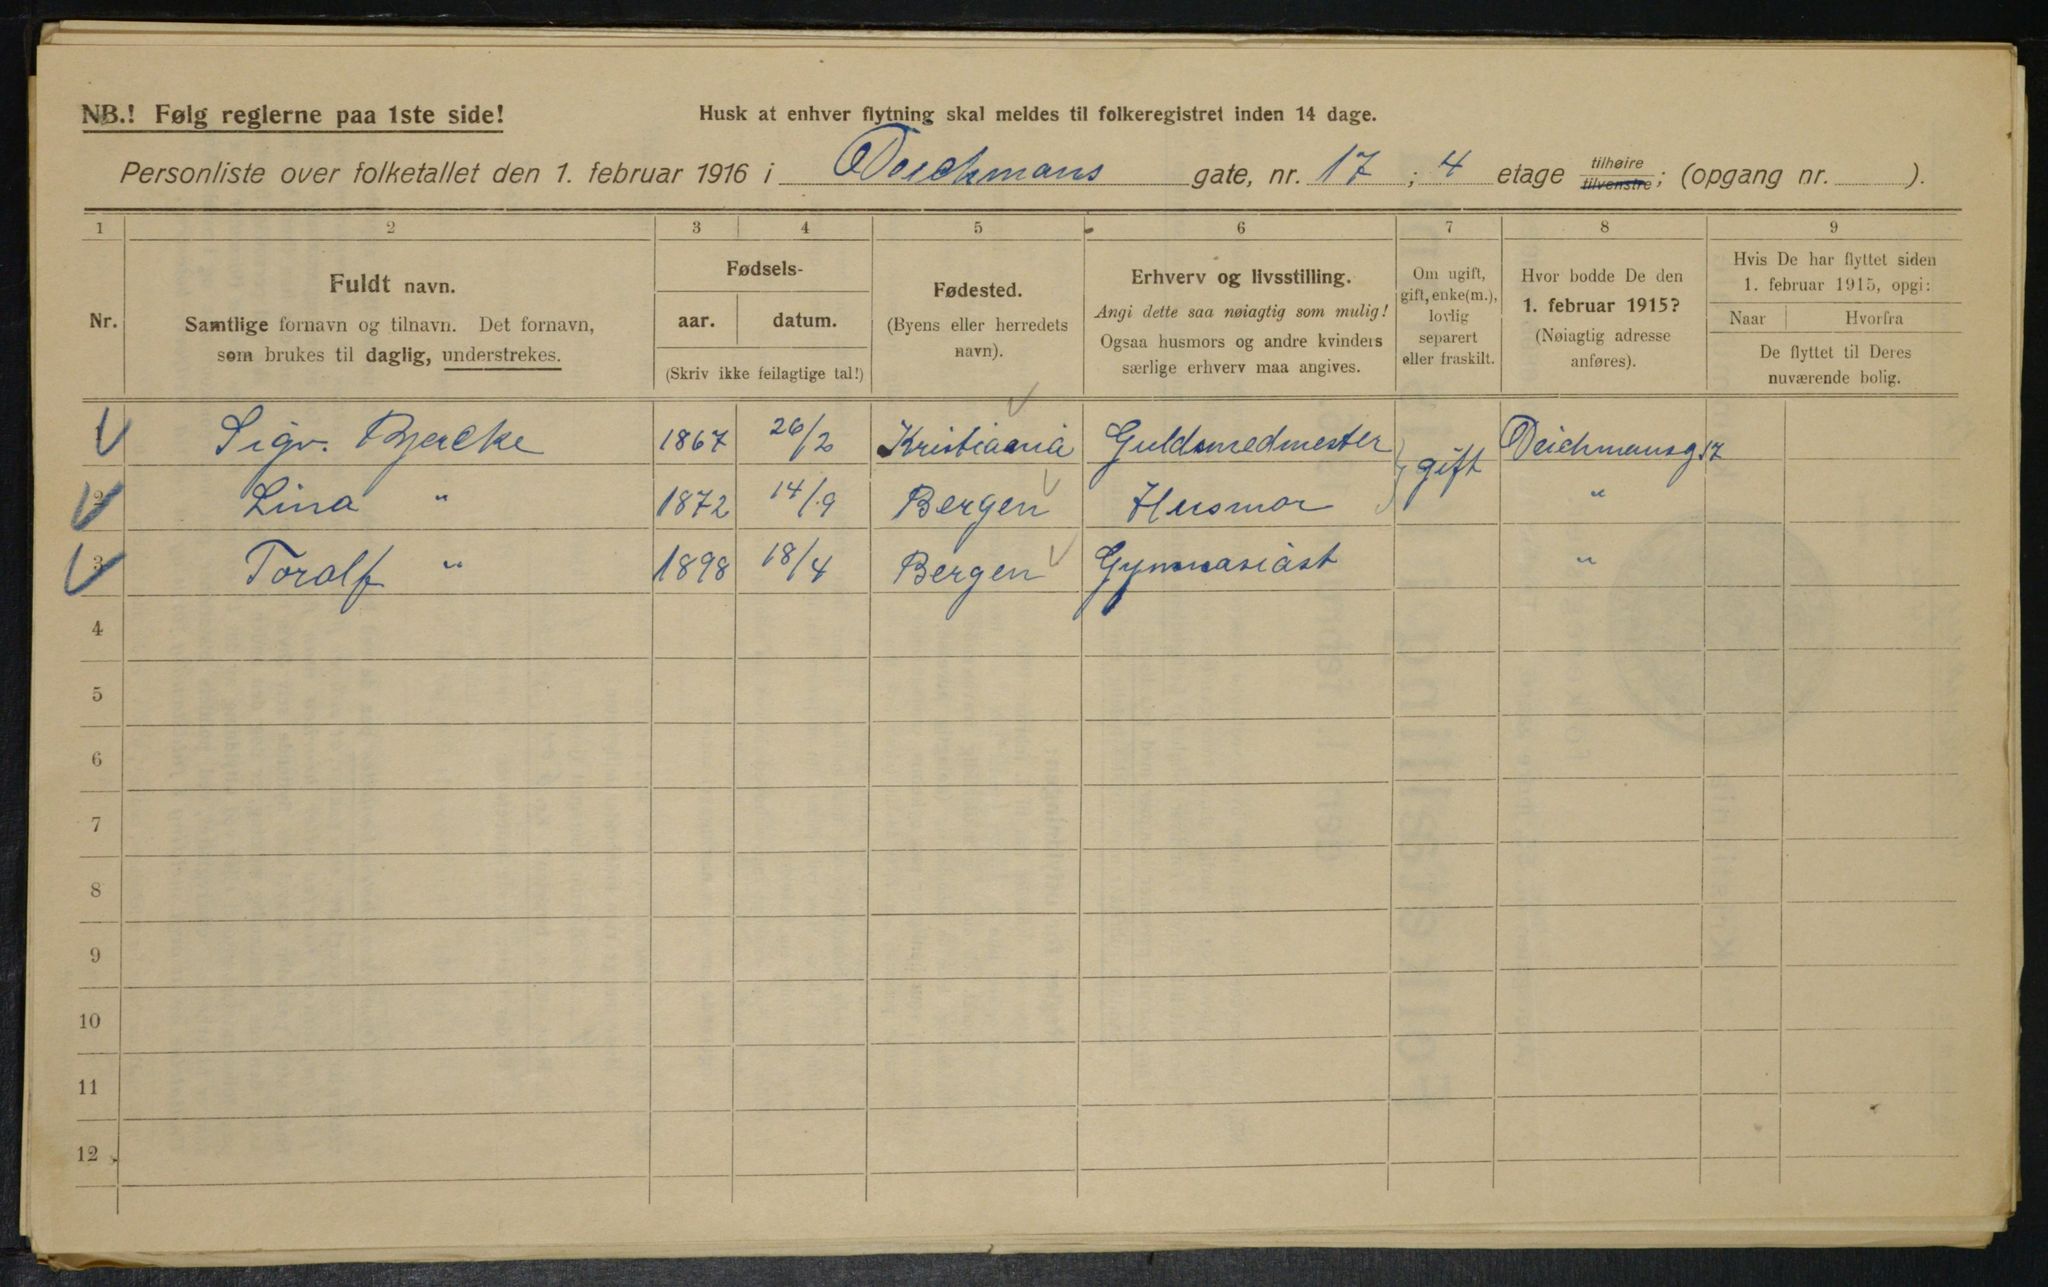 NB.! Følg reglerne paa 1ste side!
Husk at enhver flytning skal meldes til folkeregistret inden 14 dage.
Personliste over folketallet den 1. februar 1916 i Deichmans gate, nr. 17 ; 4 etage tilhøire tilvenstre; (opgang nr. ).
1 2 3 4 5 6 7 8 9
Nr.
Fuldt navn.
Samtlige fornavn og tilnavn. Det fornavn,
som brukes til daglig, understrekes.
Fødsels-
aar. datum.
(Skriv ikke feilagtige tal!)
Fødested.
(Byens eller herredets
navn).
Erhverv og livsstilling.
Angi dette saa nøiagtig som mulig!
Ogsaa husmors og andre kvinders
særlige erhverv maa angives.
Om ugift,
gift, enke(m.),
lovlig
separert
eller fraskilt.
Hvor bodde De den
1. februar 1915?
(Nøiagtig adresse
anføres).
Hvis De har flyttet siden
1. februar 1915, opgi:
Naar Hvorfra
De flyttet til Deres
nuværende bolig.
1 Sigv. Bjercke 1867 26/2 Kristiania Guldsmedmester gift Deichmansg 17
2 Lina " 1872 14/9 Bergen Husmor "
3 Toralf " 1898 18/4 Bergen Gymnasiast "
4
5
6
7
8
9
10
11
12